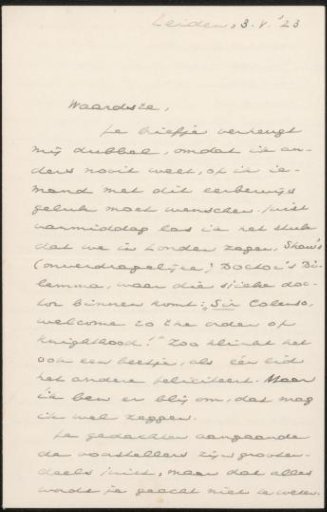 Leiden, 3.V.'23
Waardste,
Je briefje verheugt
mij dubbel, omdat ik an-
ders nooit weet, of ik ie-
mand met dit eerbewijs
geluk moet wenschen. Juist
vanmiddag las ik het stuk
dat we in Londen zagen, Shaw's
(onverdragelijke) Doctor's Di-
lemma, waar die sjieke doc-
tor binnen komt: „Sir Colenso,
welcome to the order of
knighthood!" Zoo klinkt het
ook een beetje, als één lid
het andere feliciteert. Maar
ik ben er blij om, dat mag
ik wel zeggen.
Je gedachten aangaande
de voorstellers zijn grooten-
deels juist, maar dat alles
wordt je geacht niet te weten.